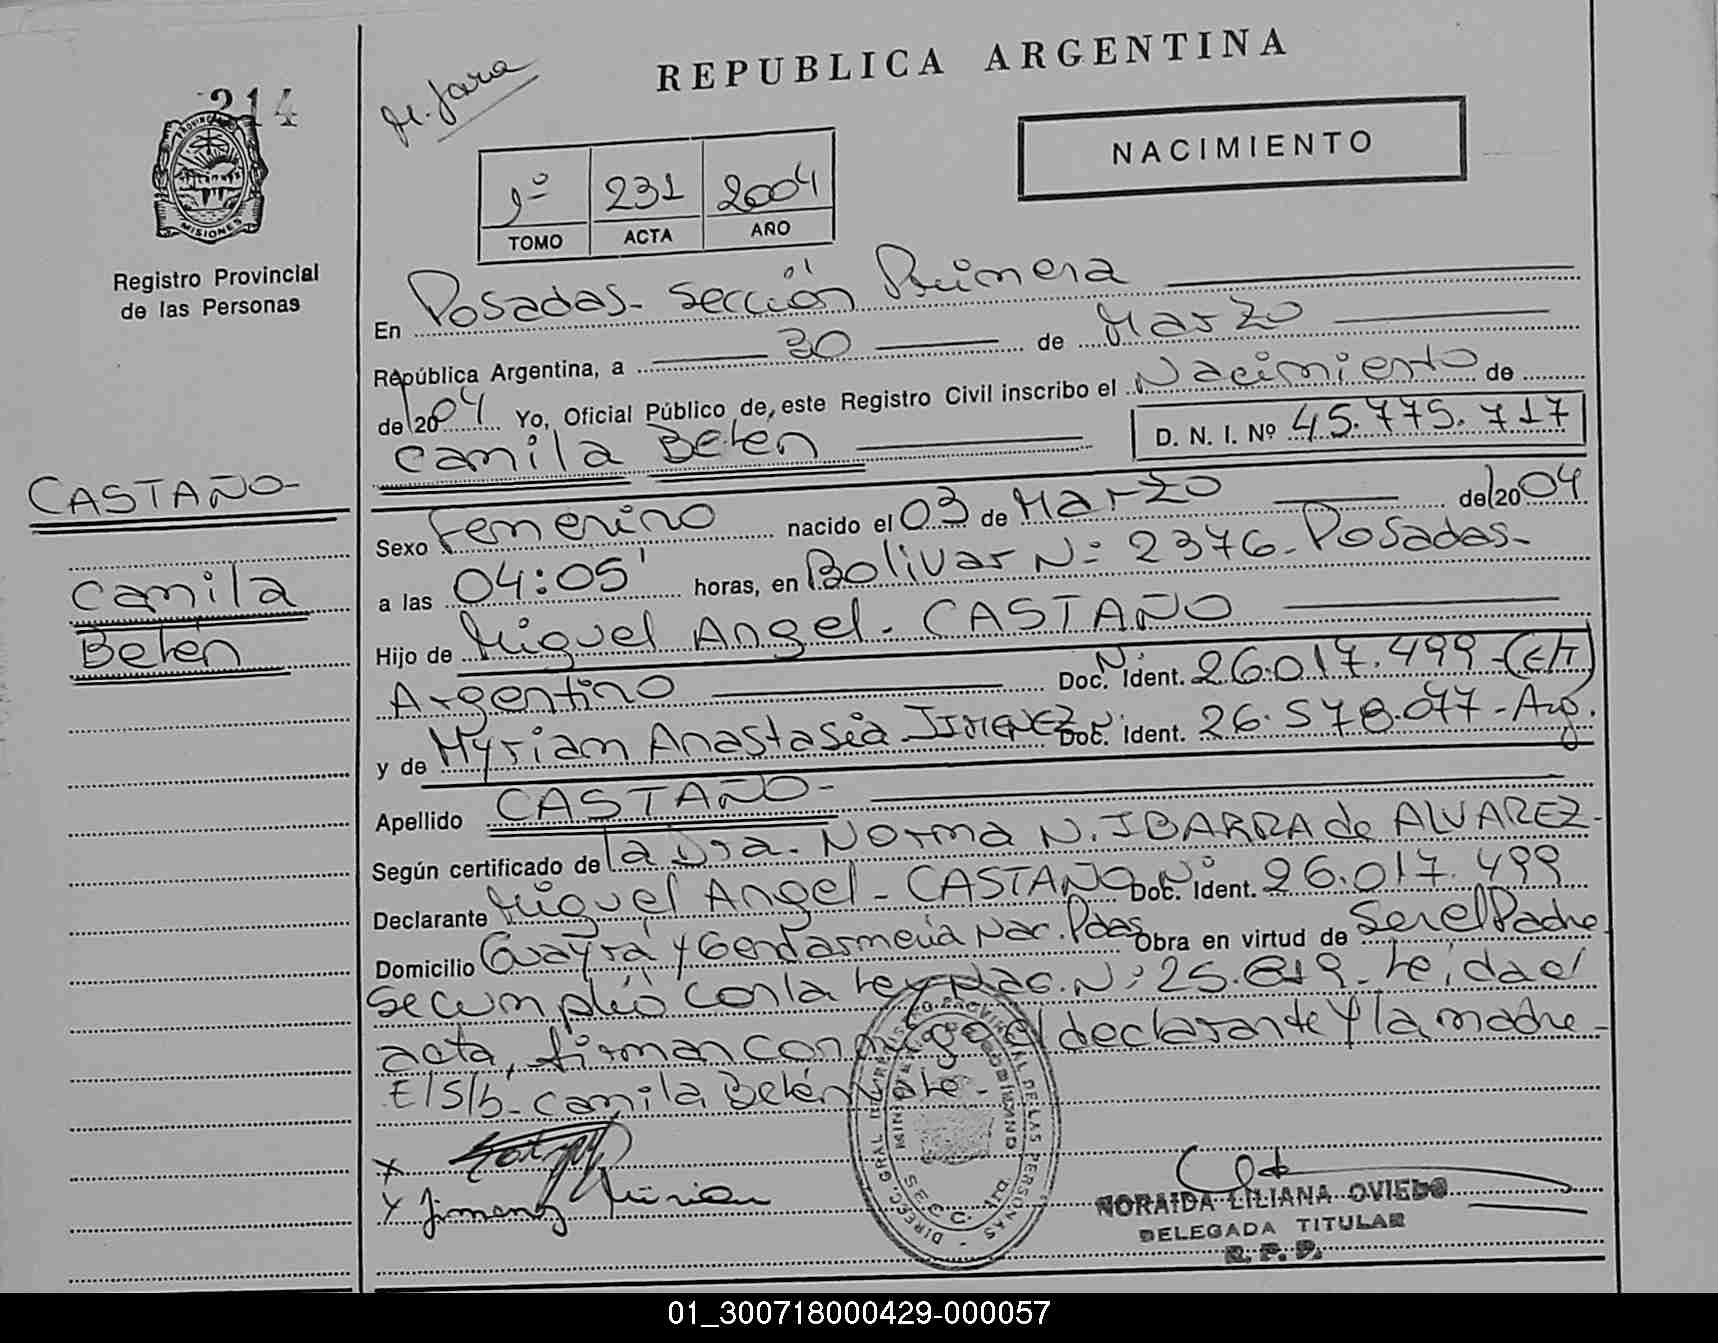 214
M. Jara
REPUBLICA ARGENTINA
NACIMIENTO
1º 231 2004
TOMO ACTA AÑO
PROVINCIA
MISIONES
Registro Provincial
de las Personas
En Posadas - Sección Primera
República Argentina, a 30 de Marzo
del 2004 Yo, Oficial Público de este Registro Civil inscribo el Nacimiento de
Camila Belén D. N. I. Nº 45.775.717
CASTAÑO-
Camila
Belén
Sexo Femenino nacido el 03 de Marzo del 2004
a las 04:05' horas, en Bolivar Nº 2376-Posadas-
Hijo de Miguel Angel - CASTAÑO
Argentino Doc. Nº Ident. 26.017.499-(C/T)
y de Myriam Anastasia JIMENEZ Doc. Nº Ident. 26.578.077-Arg.
Apellido CASTAÑO-
Según certificado de la Dra. Norma N. IBARRA de ALVAREZ-
Declarante Miguel Angel - CASTAÑO Doc. Nº Ident. 26.017.499
Domicilio Guayra y Gendarmeria Nac. Pdas Obra en virtud de Ser el Padre
se cumplió con la Ley Nac. Nº 25.819- Leida el
acta, firman conmigo el declarante y la madre-
E/S/b- Camila Belén Vale-
X
X Jimenez Mirian
NORAIDA LILIANA OVIEDO
DELEGADA TITULAR
R. P. P.
01_300718000429-000057